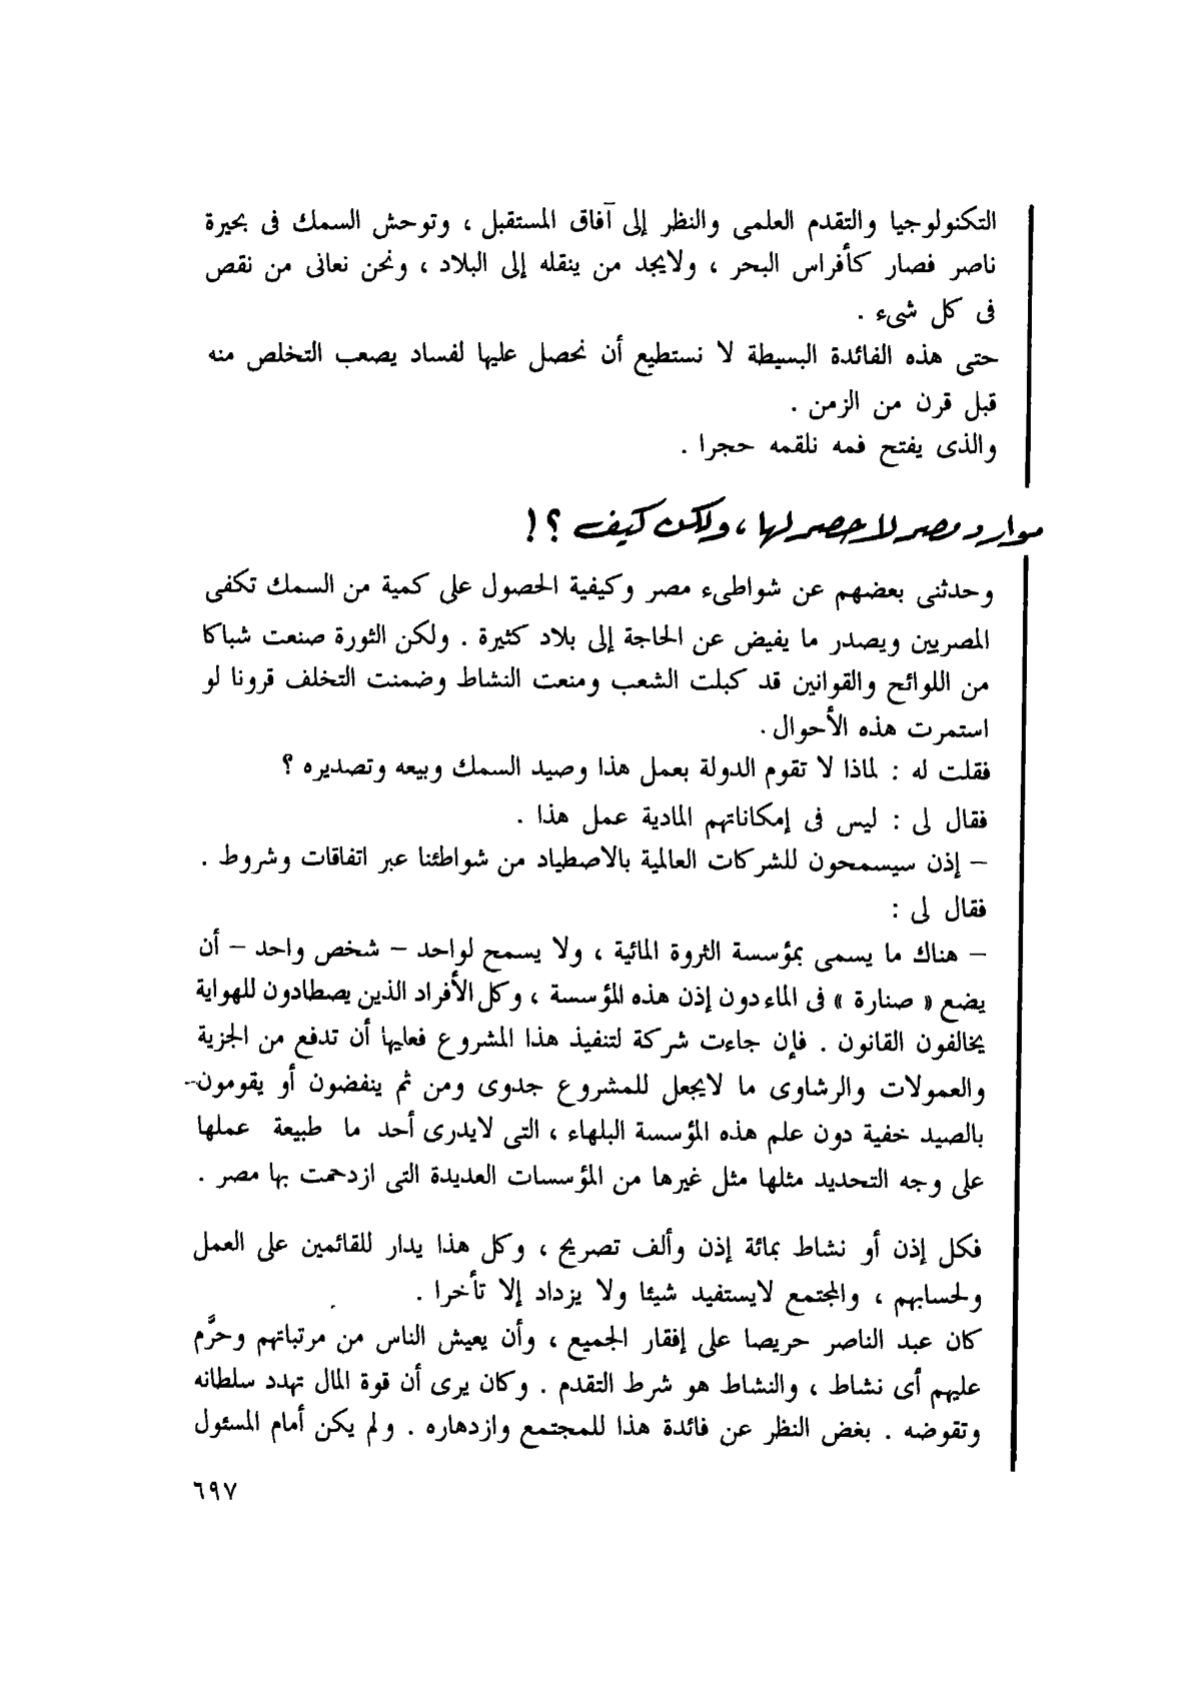 التكنولوجيا والتقدم العلمى والنظر إلى آفاق المستقبل ، وتوحش السمك فى بحيرة
ناصر فصار كأفراس البحر ، ولايجد من ينقله إلى البلاد ، ونحن نعانى من نقص
فى كل شىء .
حتى هذه الفائدة البسيطة لا نستطيع أن نحصل عليها لفساد يصعب التخلص منه
قبل قرن من الزمن .
والذى يفتح فمه نلقمه حجرا .
موارد مصر لا حصر لها ، ولكن كيف ؟!
وحدثنى بعضهم عن شواطىء مصر وكيفية الحصول على كمية من السمك تكفى
المصريين ويصدر ما يفيض عن الحاجة إلى بلاد كثيرة . ولكن الثورة صنعت شباكا
من اللوائح والقوانين قد كبلت الشعب ومنعت النشاط وضمنت التخلف قرونا لو
استمرت هذه الأحوال .
فقلت له : لماذا لا تقوم الدولة بعمل هذا وصيد السمك وبيعه وتصديره ؟
فقال لى : ليس فى إمكاناتهم المادية عمل هذا .
– إذن سيسمحون للشركات العالمية بالاصطياد من شواطئنا عبر اتفاقات وشروط .
فقال لى :
– هناك ما يسمى بمؤسسة الثروة المائية ، ولا يسمح لواحد – شخص واحد – أن
يضع « صنارة » فى الماء دون إذن هذه المؤسسة ، وكل الأفراد الذين يصطادون للهواية
يخالفون القانون . فإن جاءت شركة لتنفيذ هذا المشروع فعليها أن تدفع من الجزية
والعمولات والرشاوى ما لايجعل للمشروع جدوى ومن ثم ينفضون أو يقومون
بالصيد خفية دون علم هذه المؤسسة البلهاء ، التى لايدرى أحد ما طبيعة عملها
على وجه التحديد مثلها مثل غيرها من المؤسسات العديدة التى ازدحمت بها مصر .
فكل إذن أو نشاط بمائة إذن وألف تصريح ، وكل هذا يدار للقائمين على العمل
ولحسابهم ، والمجتمع لايستفيد شيئا ولا يزداد إلا تأخرا .
كان عبد الناصر حريصا على إفقار الجميع ، وأن يعيش الناس من مرتباتهم وحرَّم
عليهم أى نشاط ، والنشاط هو شرط التقدم . وكان يرى أن قوة المال تهدد سلطانه
وتقوضه . بغض النظر عن فائدة هذا للمجتمع وازدهاره . ولم يكن أمام المسئول
٦٩٧